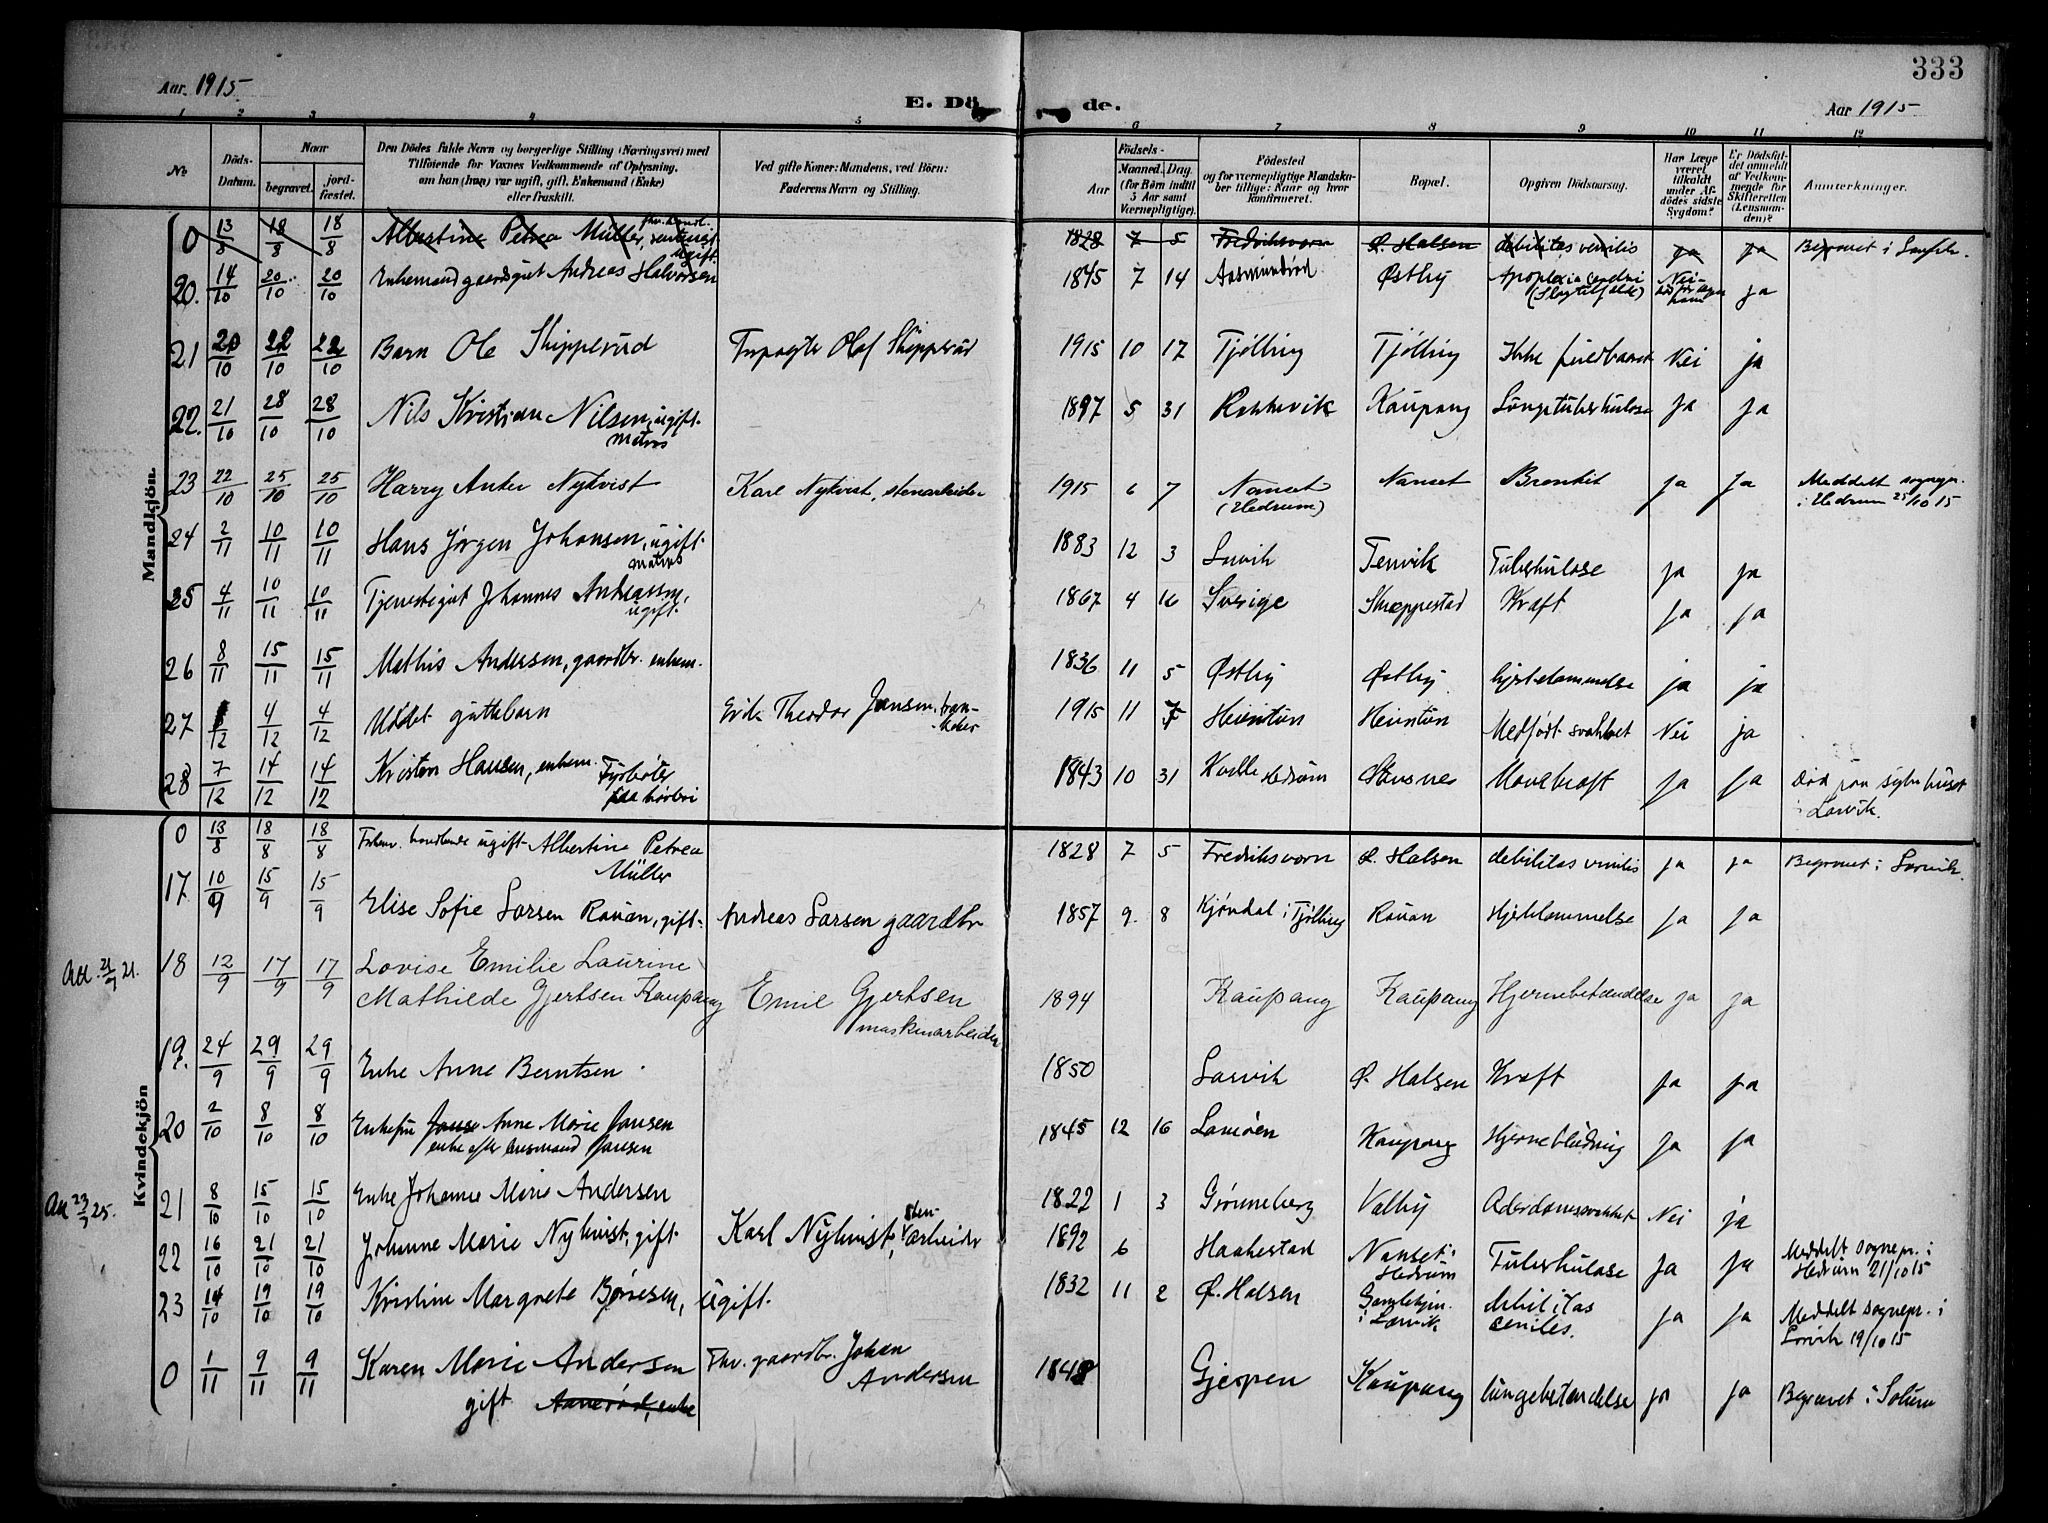 333
Aar. 1915
E. Dö de.
Aar 1915
1 2 3 4 5 6 7 8 9 10 11 12
No
Döds-Datum.
Naar
begravet.
jordfæstet.
Den Dödes fulde Navn og borgerlige Stilling (Næringsvei) med
Tilföiende for Voxnes Vedkommende af Oplysning,
om han (hun) var ugift, gift, Enkemand (Enke)
eller fraskilt.
Ved gifte Koner: Mandens, ved Börn:
Faderens Navn og Stilling.
Födsels-
Aar
Maaned. Dag.
(for Börn indtil
5 Aar samt
Værnepligtige).
Födested
og for værnepligtige Mandskaber tillige: Naar og hvor
konfirmeret.
Bopæl.
Opgiven Dödsaarsag.
Har Læge
været
tilkaldt
under Afdödes sidste
Sygdom?
Er Dödsfaldet anmeldt
af Vedkommende for
Skifteretten
(Lensmanden)?
Anmærkninger.
Mandkjön.
0 13/8 18/8 18/8 Albertine Petrea Müller, ugift. 1828 7 5 Fredriksværn Ø. Halsen debilitas senilis ja ja Begravet i Larvik.
20. 14/10 20/10 20/10 Enkemand gaardsgut Andreas Halvorsen 1845 7 14 Aasmundrød Østby Apoplexia cerebri (Slagtilfælde) Nei ja
21 20/10 22/10 22/10 Barn Ole Skipperud Olaf Skipperud 1915 10 17 Tjølling Tjølling Ikke fuldbaaret Nei ja
22. 21/10 28/10 28/10 Nils Kristian Nilsen, ugift. matros 1897 5 31 Rekkevik Kaupang Lungetuberkulose ja ja
23 22/10 25/10 25/10 Harry Anker Nykvist Karl Nykvist, stenarbeider 1915 6 7 Nanset (Hedrum) Nanset Bronkit ja ja Meddelt sognepr. i Hedrum 25/10 15
24 2/11 10/11 10/11 Hans Jørgen Johansen, ugift. matros 1883 12 3 Larvik Tenvik Tuberkulose ja ja
25 4/11 10/11 10/11 Tjenestegut Johannes Andreassen, ugift. 1867 4 16 Sverige Skreppestad Kræft ja ja
26 8/11 15/11 15/11 Mathis Andersen, gaardbr. enkem. 1836 11 5 Østby Østby hjertelammelse ja ja
27 1/12 4/12 4/12 Udøbt guttebarn Erik Theodor Jensen, 1915 11 Heimtun Heimtun Medfødt svakhet Nei ja
28 7/12 14/12 14/12 Kristen Hansen, enkem. Fyrbøter 1843 10 31 Kvelle Hedrum Mavekræft ja ja Død paa sykehuset i Larvik.
Kvindekjön
0 13/8 18/8 18/8 Forhenv. handlende ugift Albertine Petrea Müller 1828 7 5 Fredriksværn Ø. Halsen debilitas senilis ja ja Begravet i Larvik.
17. 10/9 15/9 15/9 Elise Sofie Larsen Rauan, gift. Andreas Larsen gaardbr 1857 9. 8 Kjøndal i Tjølling Rauan Hjertelammelse ja ja
Att. 21/9 21.
18 12/9 17/9 17/9 Lovise Emilie Laurine
Mathilde Gjertsen Kaupang Emil Gjertsen maskinarbeider 1894 Kaupang Kaupang Hjernebetændelse ja ja
19. 24/9 29/9 29/9 Enke Anne Berntsen. 1850 Larvik Ø. Halsen Kræft ja ja
20 2/10 8/10 8/10 Enkefru Jans Anne Marie Jansen 1845 12 16 Lamøen Kaupang Hjerneblødning ja ja
enke efter husmand Jansen
Att 23/7 25.
21 8/10 15/10 15/10 Enke Johanne Marie Andersen 1822 1 3 Grønneberg Valby Alderdomssvakhet Nei ja
22 16/10 21/10 21/10 Johanne Marie Nykvist, gift. Karl Nykvist, stenarbeider 1892 6 Haakestad Nanset i Hedrum Tuberkulose ja ja Meddelt sognepr. i Hedrum 21/10 15
23 14/10 19/10 19/10 Kristine Margrete Børresen, ugift. 1832 11 2 Ø. Halsen Gamlehjem. i Larvik debilitas seniles. ja ja Meddelt sognepr. i Larvik 19/10 15
0 1/11 9/11 9/11 Karen Marie Andersen Fhv. gaardbr. Johan Andersen 1848 Gjerpen Kaupang lungebetændelse ja ja Begravet i Solum
gift Aanerød, enke